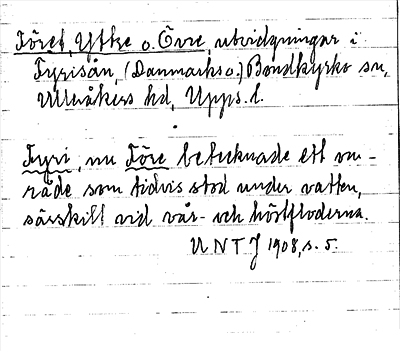 Föret, Yttre o. Övre, utvidgningar i
Fyrisån, (Danmarks o.) Bondkyrko sn,
Ulleråkers hd, Upps. l.
Fyri, nu Före betecknade ett om-
råde som tidvis stod under vatten,
särskilt vid vår- och höstfloderna.
UNTJ 1908, s. 5.